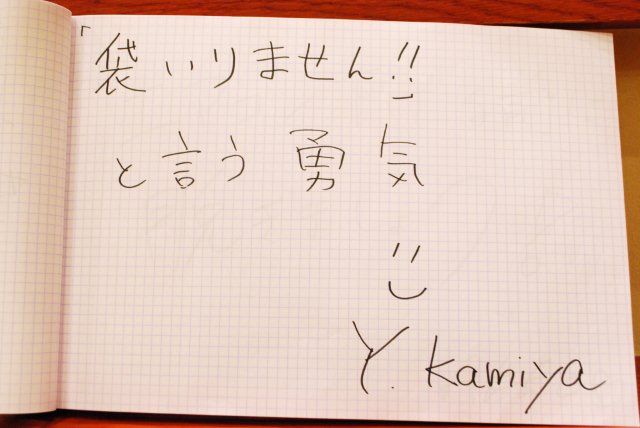 「袋いりません!!」
と言う勇気
Y. Kamiya